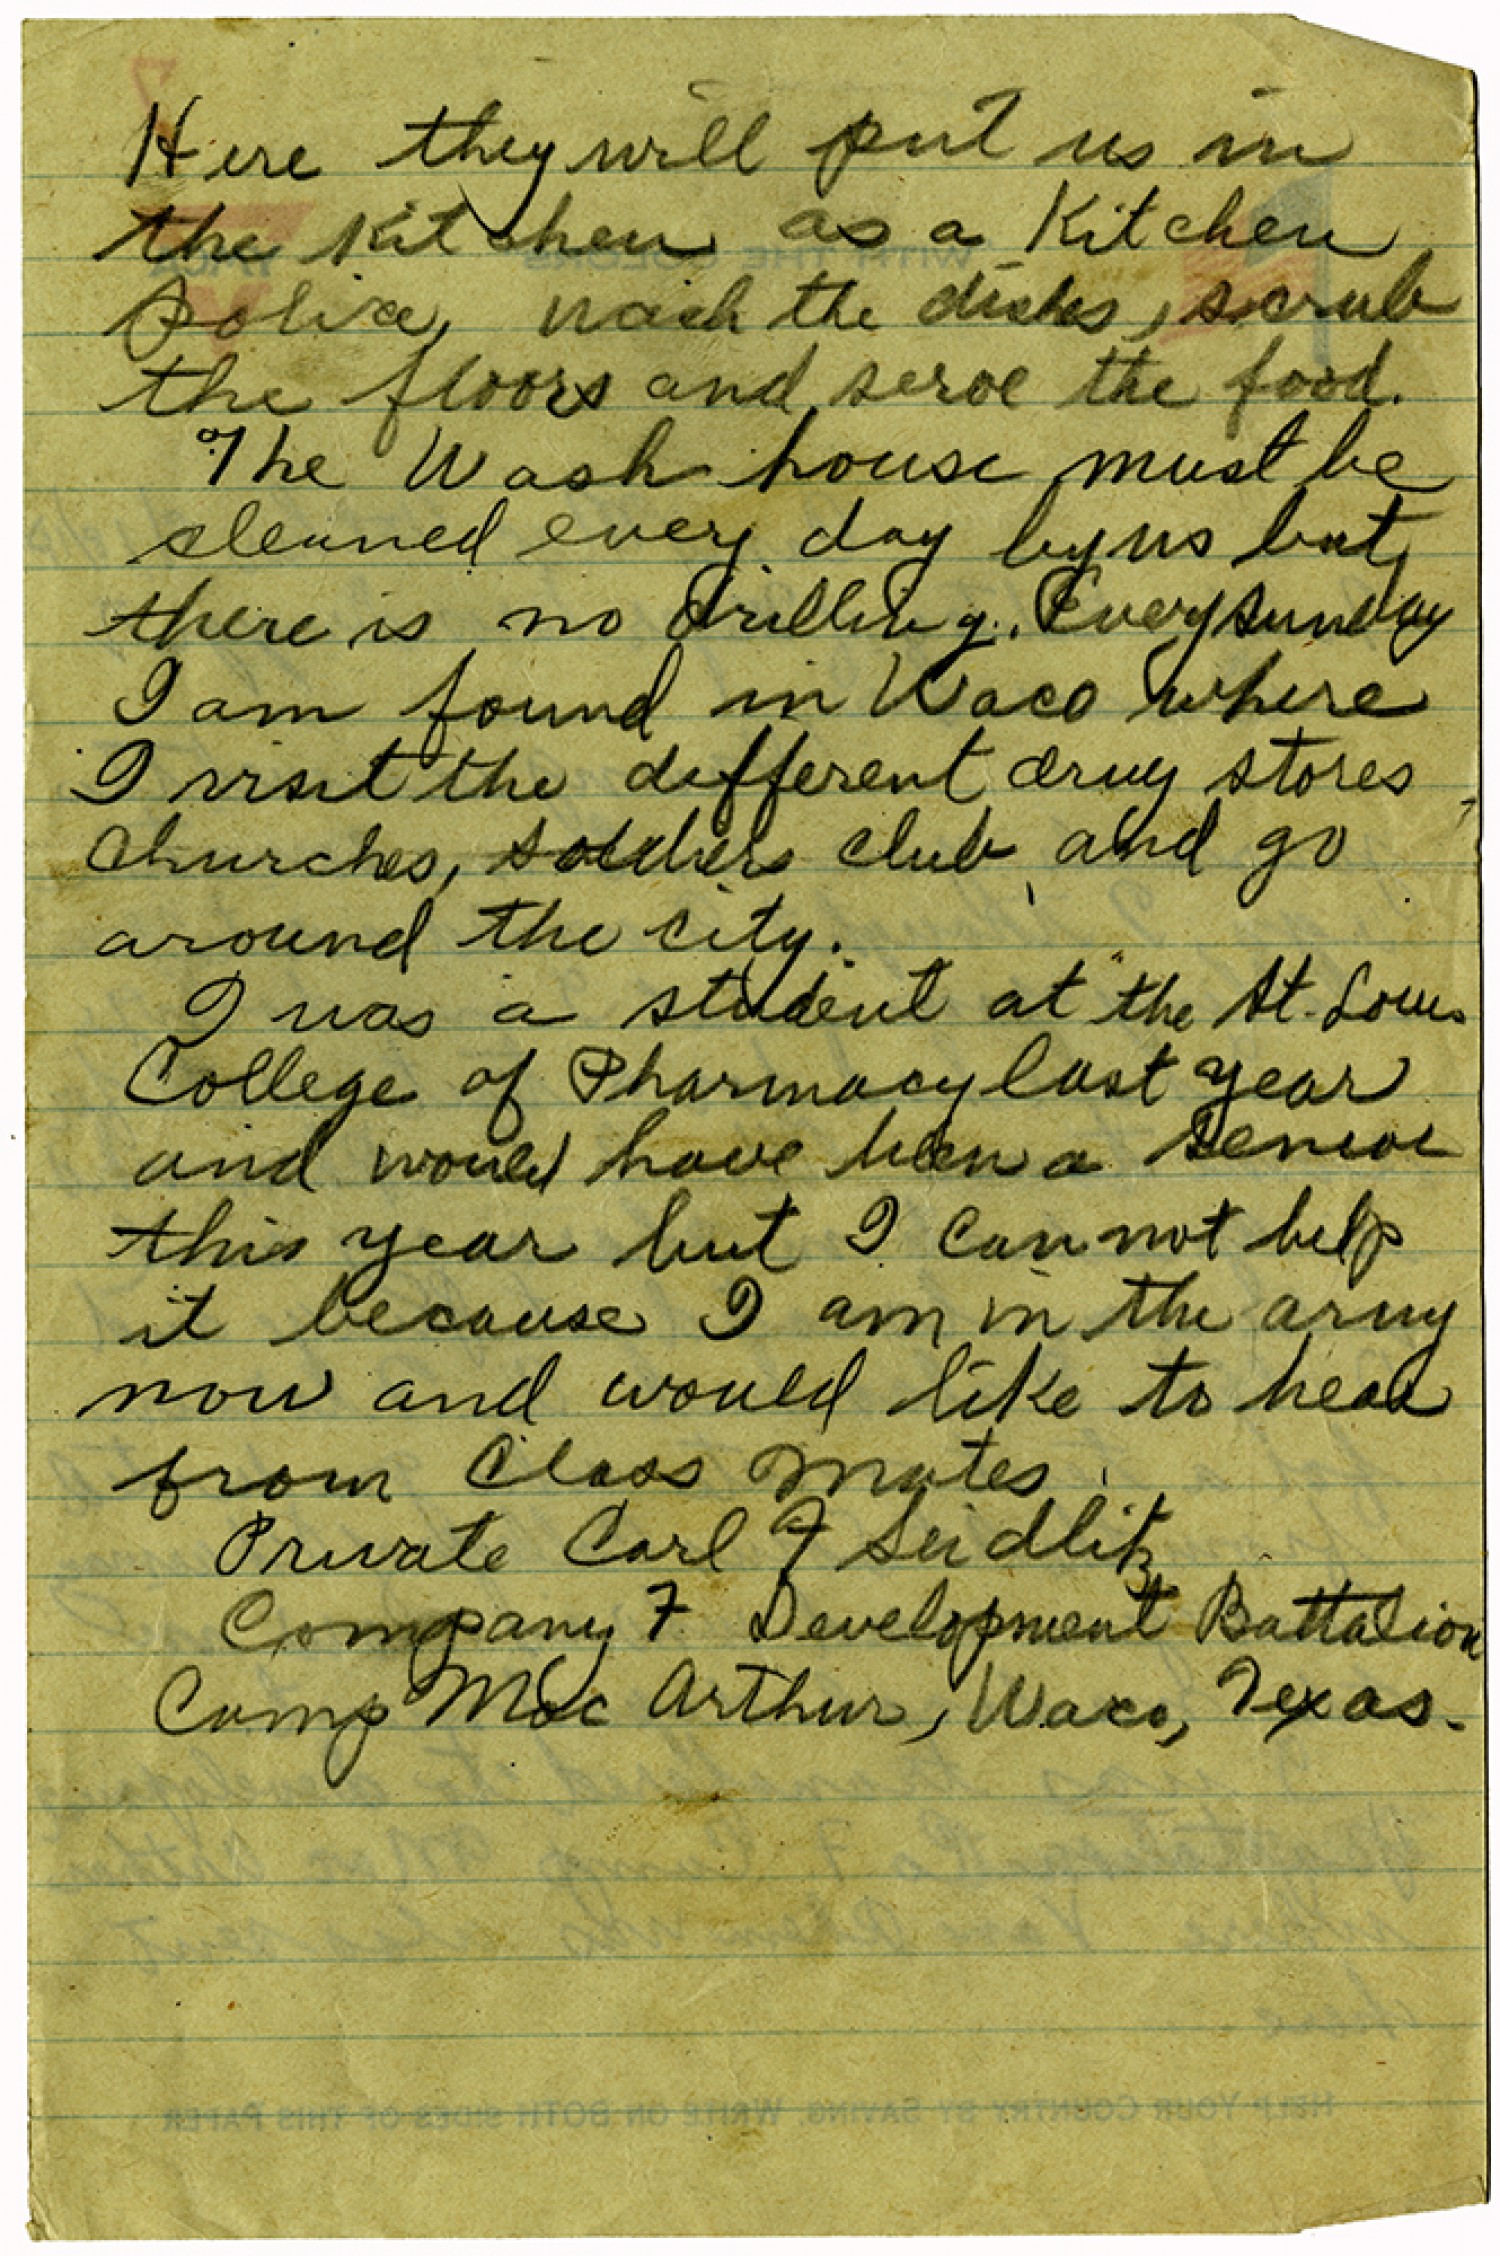 Here they will put us in
the kitchen as a Kitchen
Police, wash the dishes, scrub
the floors and serve the food.
The Wash house must be
cleaned every day by us but
there is no drilling. Every Sunday
I am found in Waco where
I visit the different drug stores,
Churches, soldiers club, and go
around the city.
I was a student at the St. Louis
College of Pharmacy last year
and would have been a Senior
this year but I can not help
it because I am in the army
now and would like to hear
from Class Mates.
Private Carl F Seidlitz
Company F Development Battalion
Camp Mac Arthur, Waco, Texas.
WITH THE COLORS
YMCA
HELP YOUR COUNTRY BY SAVING. WRITE ON BOTH SIDES OF THIS PAPER